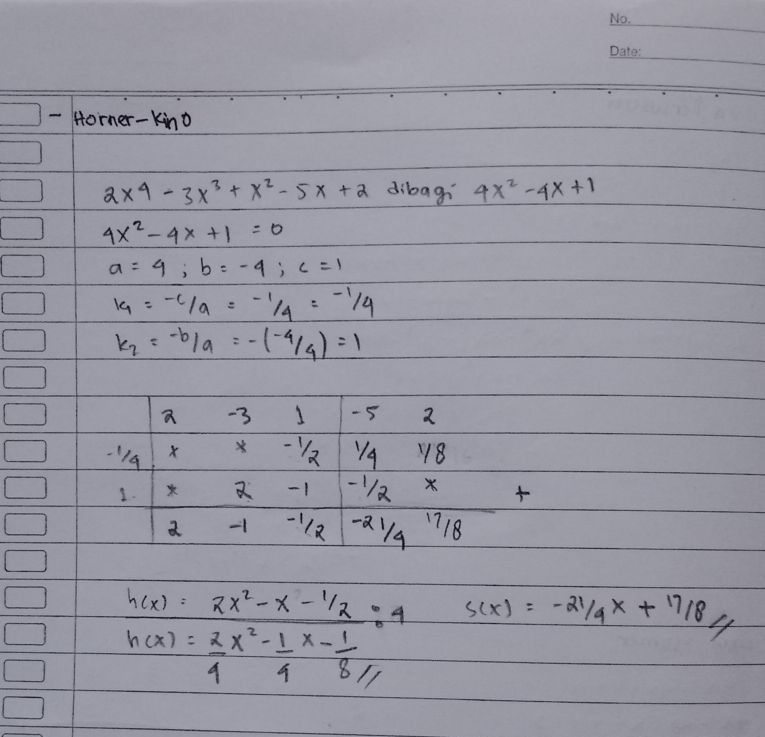 No.
Date:
- Horner-Kino
2x4 - 3x³ + x² - 5x + 2 dibagi 4x² - 4x + 1
4x² - 4x + 1 = 0
a = 4 ; b = -4 ; c = 1
k1 = -c/a = -1/4 = -1/4
k2 = -b/a = -(-4/4) = 1
2 -3 1 -5 2
-1/4 * * -1/2 1/4 1/8
1 * 2 -1 -1/2 * +
2 -1 -1/2 -21/4 17/8
h(x) = 2x² - x - 1/2 : 4 s(x) = -21/4 x + 17/8 //
h(x) = 2/4 x² - 1/4 x - 1/8 //